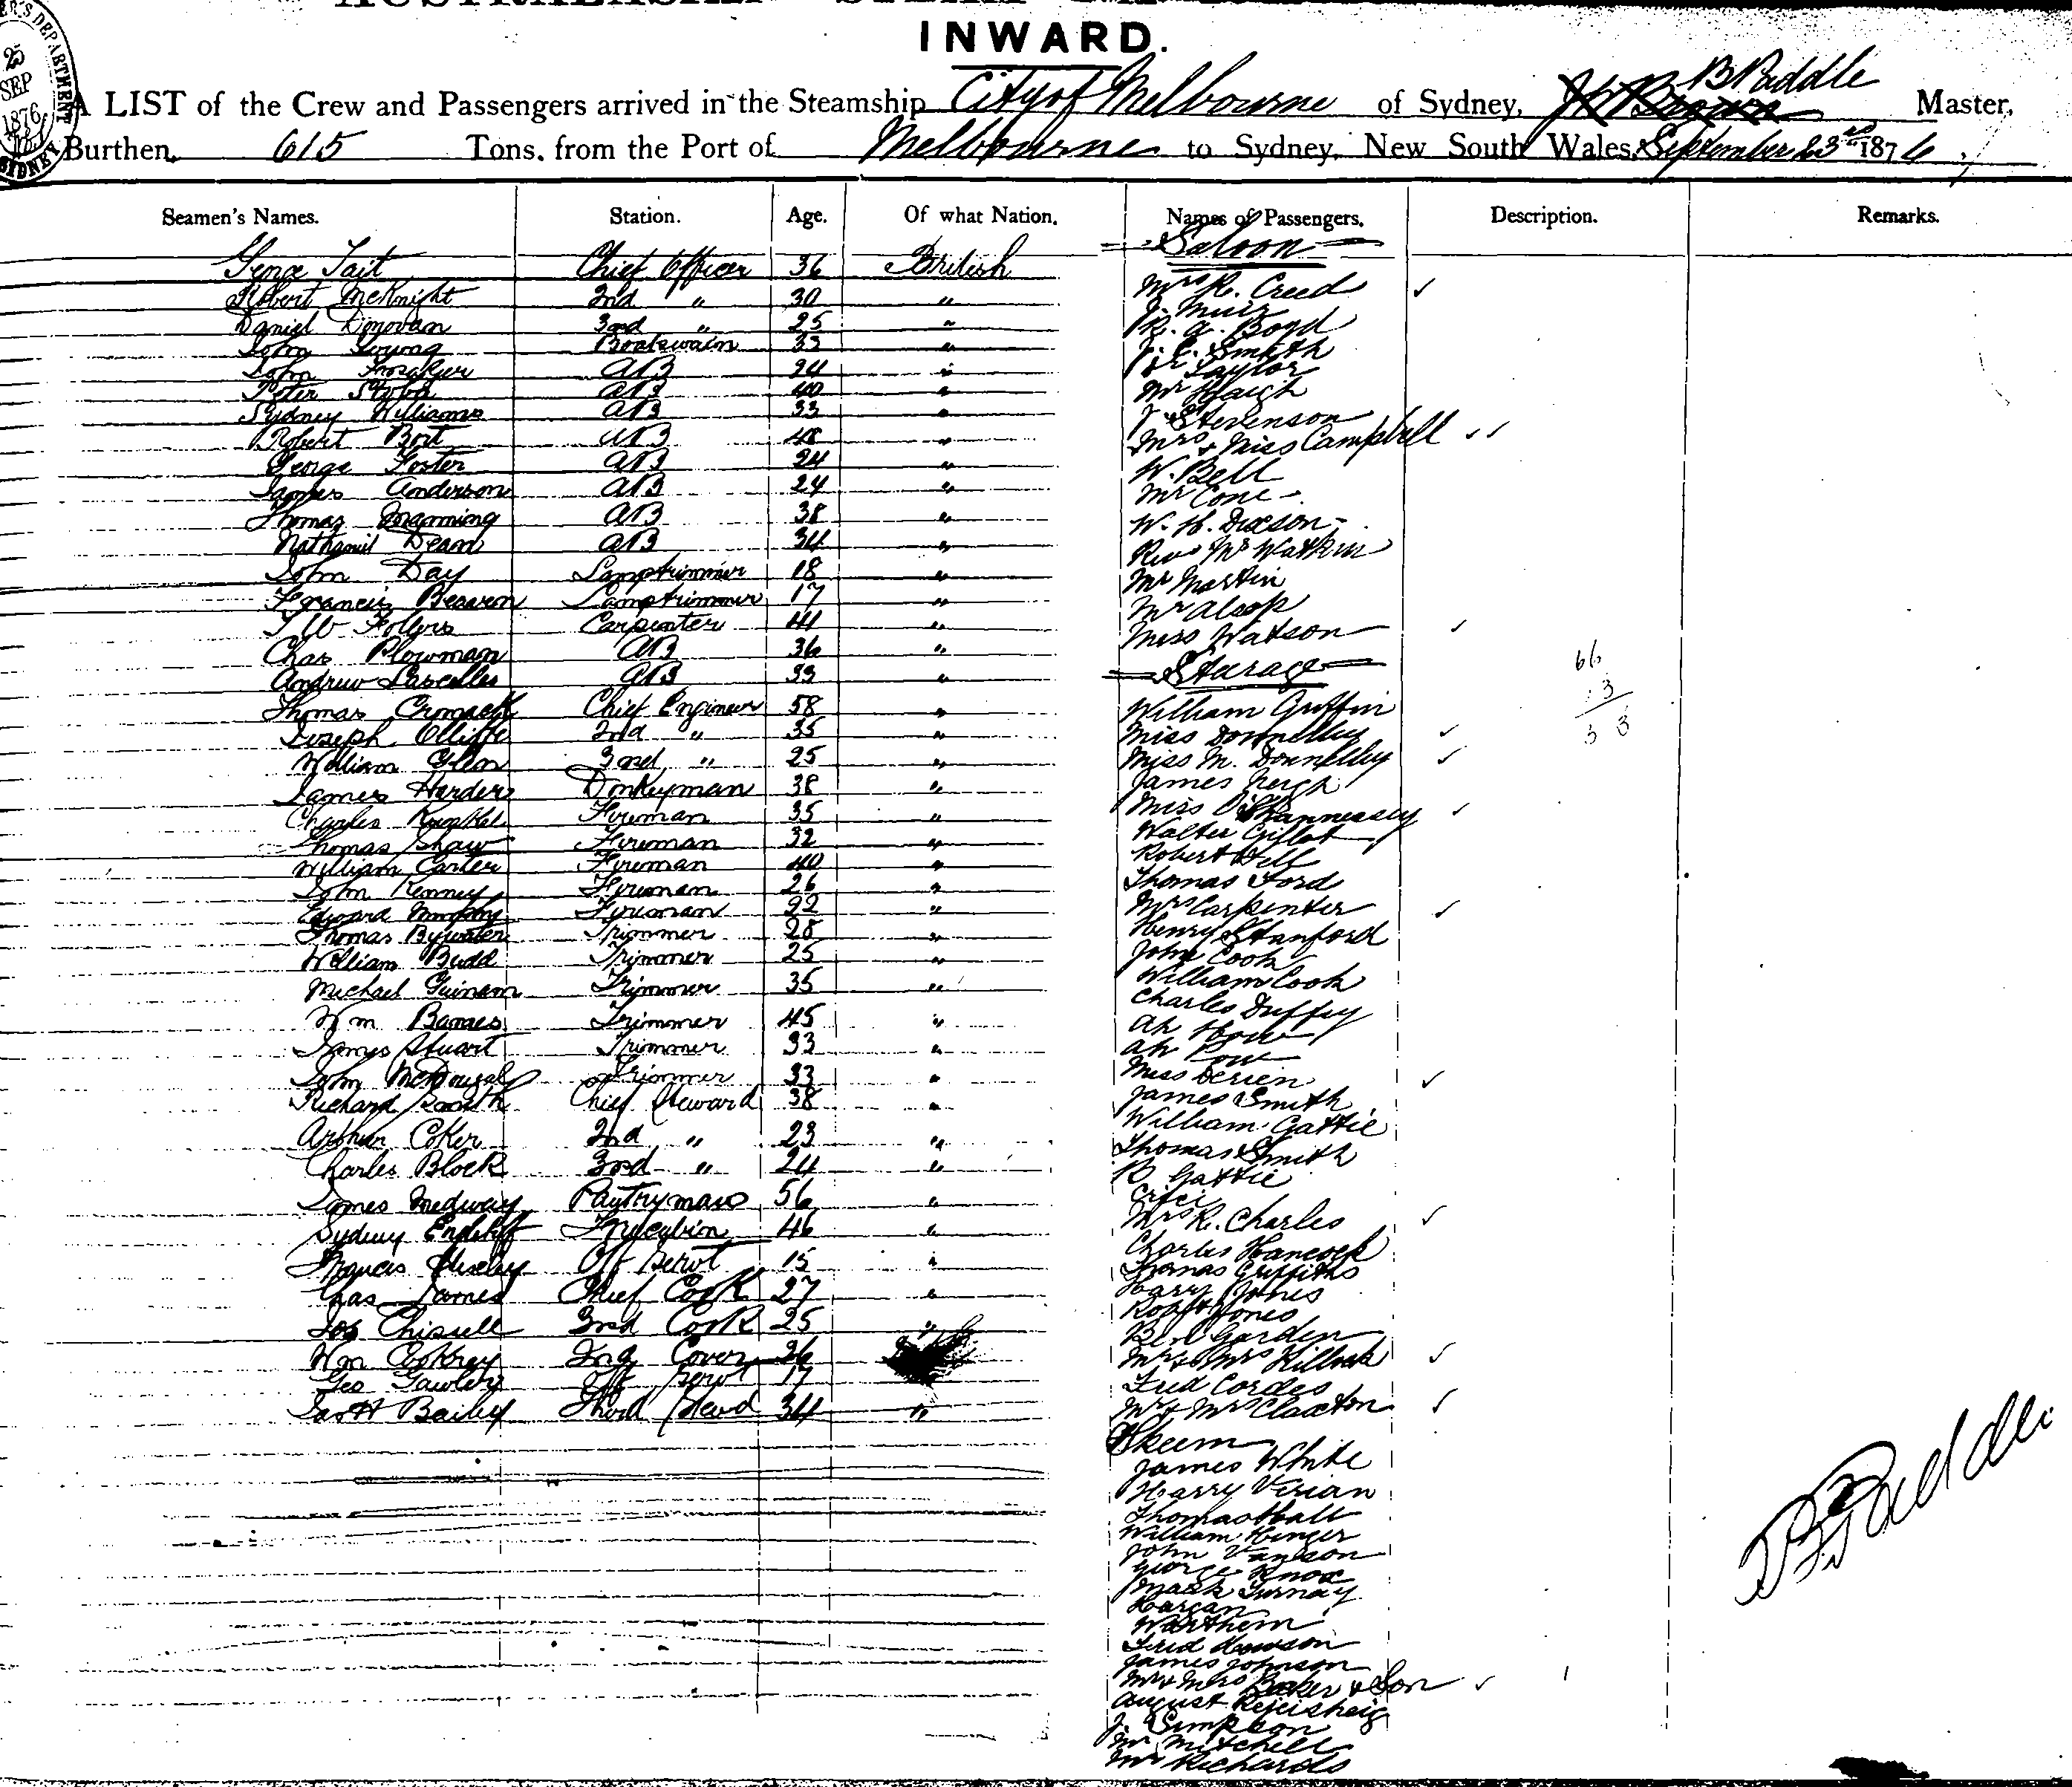 INWARD.
A LIST of the Crew and Passengers arrived in the Steamship City of Melbourne of Sydney, B Paddle Master,
Burthen, 615 Tons, from the Port of Melbourne to Sydney, New South Wales, September 23rd 1876
SEP
1876
SYDNEY
Seamen's Names. Station. Age. Of what Nation. Names of Passengers. Description. Remarks.
Saloon
George Tait Chief Officer 36 British
Robert McKnight 2nd " 30 " Mrs R. Creed ✓
Daniel Donovan 3rd " 25 " J. Muir
John Young Boatswain 33 " R. A. Boyd
John AB 24 " J. C. Smith
Peter AB 40 " Dr Taylor
Sydney Williams AB 33 " Mr Haigh
Robert Bort AB 48 " J Stevenson
George Foster AB 24 " Mrs & Miss Campbell ✓✓
James Anderson AB 24 " W. Bell
Thomas Manning AB 38 " Mr Cone
Nathaniel Dean AB 34 " W. H. Dixson
John Day Lamptrimmer 18 " Rev Mr Watkin
Francis Beaven Lamptrimmer 17 " Mr Martin
Carpenter 41 " Mr Alsop
Chas Plowman AB 36 " Miss Watson ✓
Andrew Lascelles AB 33 " Stearage
Thomas Cromack Chief Engineer 58 " William Griffin
Joseph Olliffe 2nd " 35 " Miss Donnelley ✓
William Glen 3rd " 25 " Miss M. Donnelley ✓
James Harders Donkeyman 38 " James Neigh
Charles Fireman 35 " Miss O'Shannessey ✓
Thomas Shaw Fireman 32 " Walter Gillot
William Carter Fireman 40 " Robert
John Kenney Fireman 26 " Thomas Ford
Edward Fireman 22 " Mrs Carpenter ✓
Thomas Bywater Trimmer 28 " Henry Stanford
William Budd Trimmer 25 " John Cook
Michael Guinam Trimmer 35 " William Cook
Wm Barnes Trimmer 45 " Charles Duffey
James Stuart Trimmer 33 " Ah How
John McDougal Trimmer 33 " Ah Pow
Richard Smith Chief Steward 38 " Miss Derien ✓
Arthur Coker 2nd " 23 " James Smith
Charles Block 3rd " 24 " William Gattie
James Medway Pantryman 56 " Thomas Smith
Sydney Forecabin 46 " R Gattie
Francis Huxley Off Servt 15 "
Chas James Chief Cook 27 " Mrs R. Charles ✓
Job Chisell 2nd Cook 25 " Charles Hancock
Wm Cookrey 2nd 26 Thomas Griffiths
Geo Gawler Off Servt 17 Harry Jones
Jas H Bailey Third Stewd 34 " Robt Jones
Ben Garden
Mr & Mrs Killick ✓
Fred Cordes
Mr & Mrs Claxton ✓
Skeem
James White
Harry Verian
Thomas Hall
William Hinger
John Vanson
George Knox
Mark Turnay
Hargan
Warthem
Fred Dawson
James Johnson
Mr & Mrs Baker & Son ✓
August
J. Simpson
Mr Mitchell
Mr Richards
66
3
3 3
B Paddle